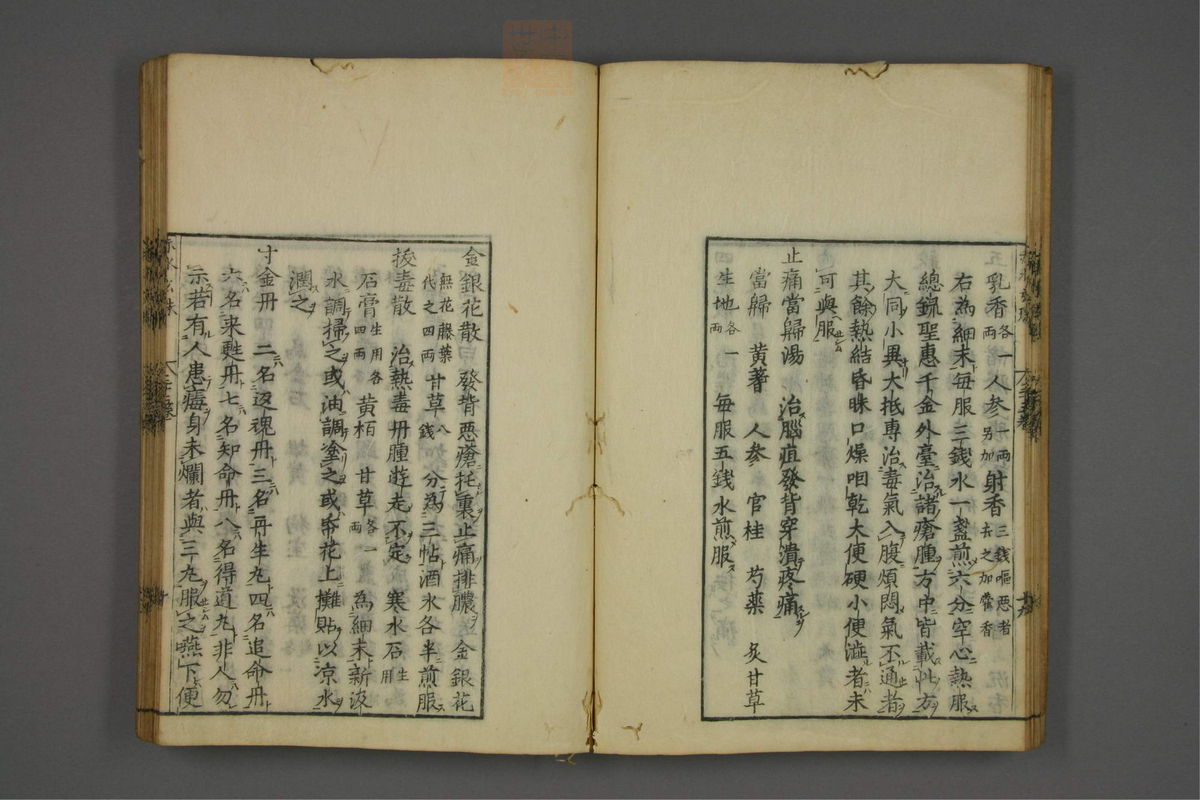 乳香各一兩人參別加一兩射香三錢嘔惡者去之加藿香
右為細末每服三錢水一盞煎六分空心熱服
總錄聖惠千金外臺治諸瘡腫方中皆載此方
大同小異大抵專治毒氣入腹煩悶氣不通者
其餘熱結昏昧口燥咽乾大便硬小便澁者未
可與服
止痛當歸湯 治腦疽發背穿潰疼痛
當歸 黃蓍 人參 官桂 芍藥 炙甘草
生地各一兩 每服五錢水煎服
金銀花散 發背惡瘡托裏止痛排膿 金銀花
無花藤葉代之四兩 甘草八錢 分為三帖酒水各半煎服
拔毒散 治熱毒丹腫遊走不定 寒水石生用
石膏生用各四兩 黃栢 甘草各一兩 為細末新汲
水調掃之或油調塗之或帋花上攤貼以凉水
潤之
寸金丹 二名返魂丹三名再生丸四名追命丹
六名来甦丹七名知命丹八名得道丸非人勿
示若有人患癰身未爛者與三丸服之燕下便